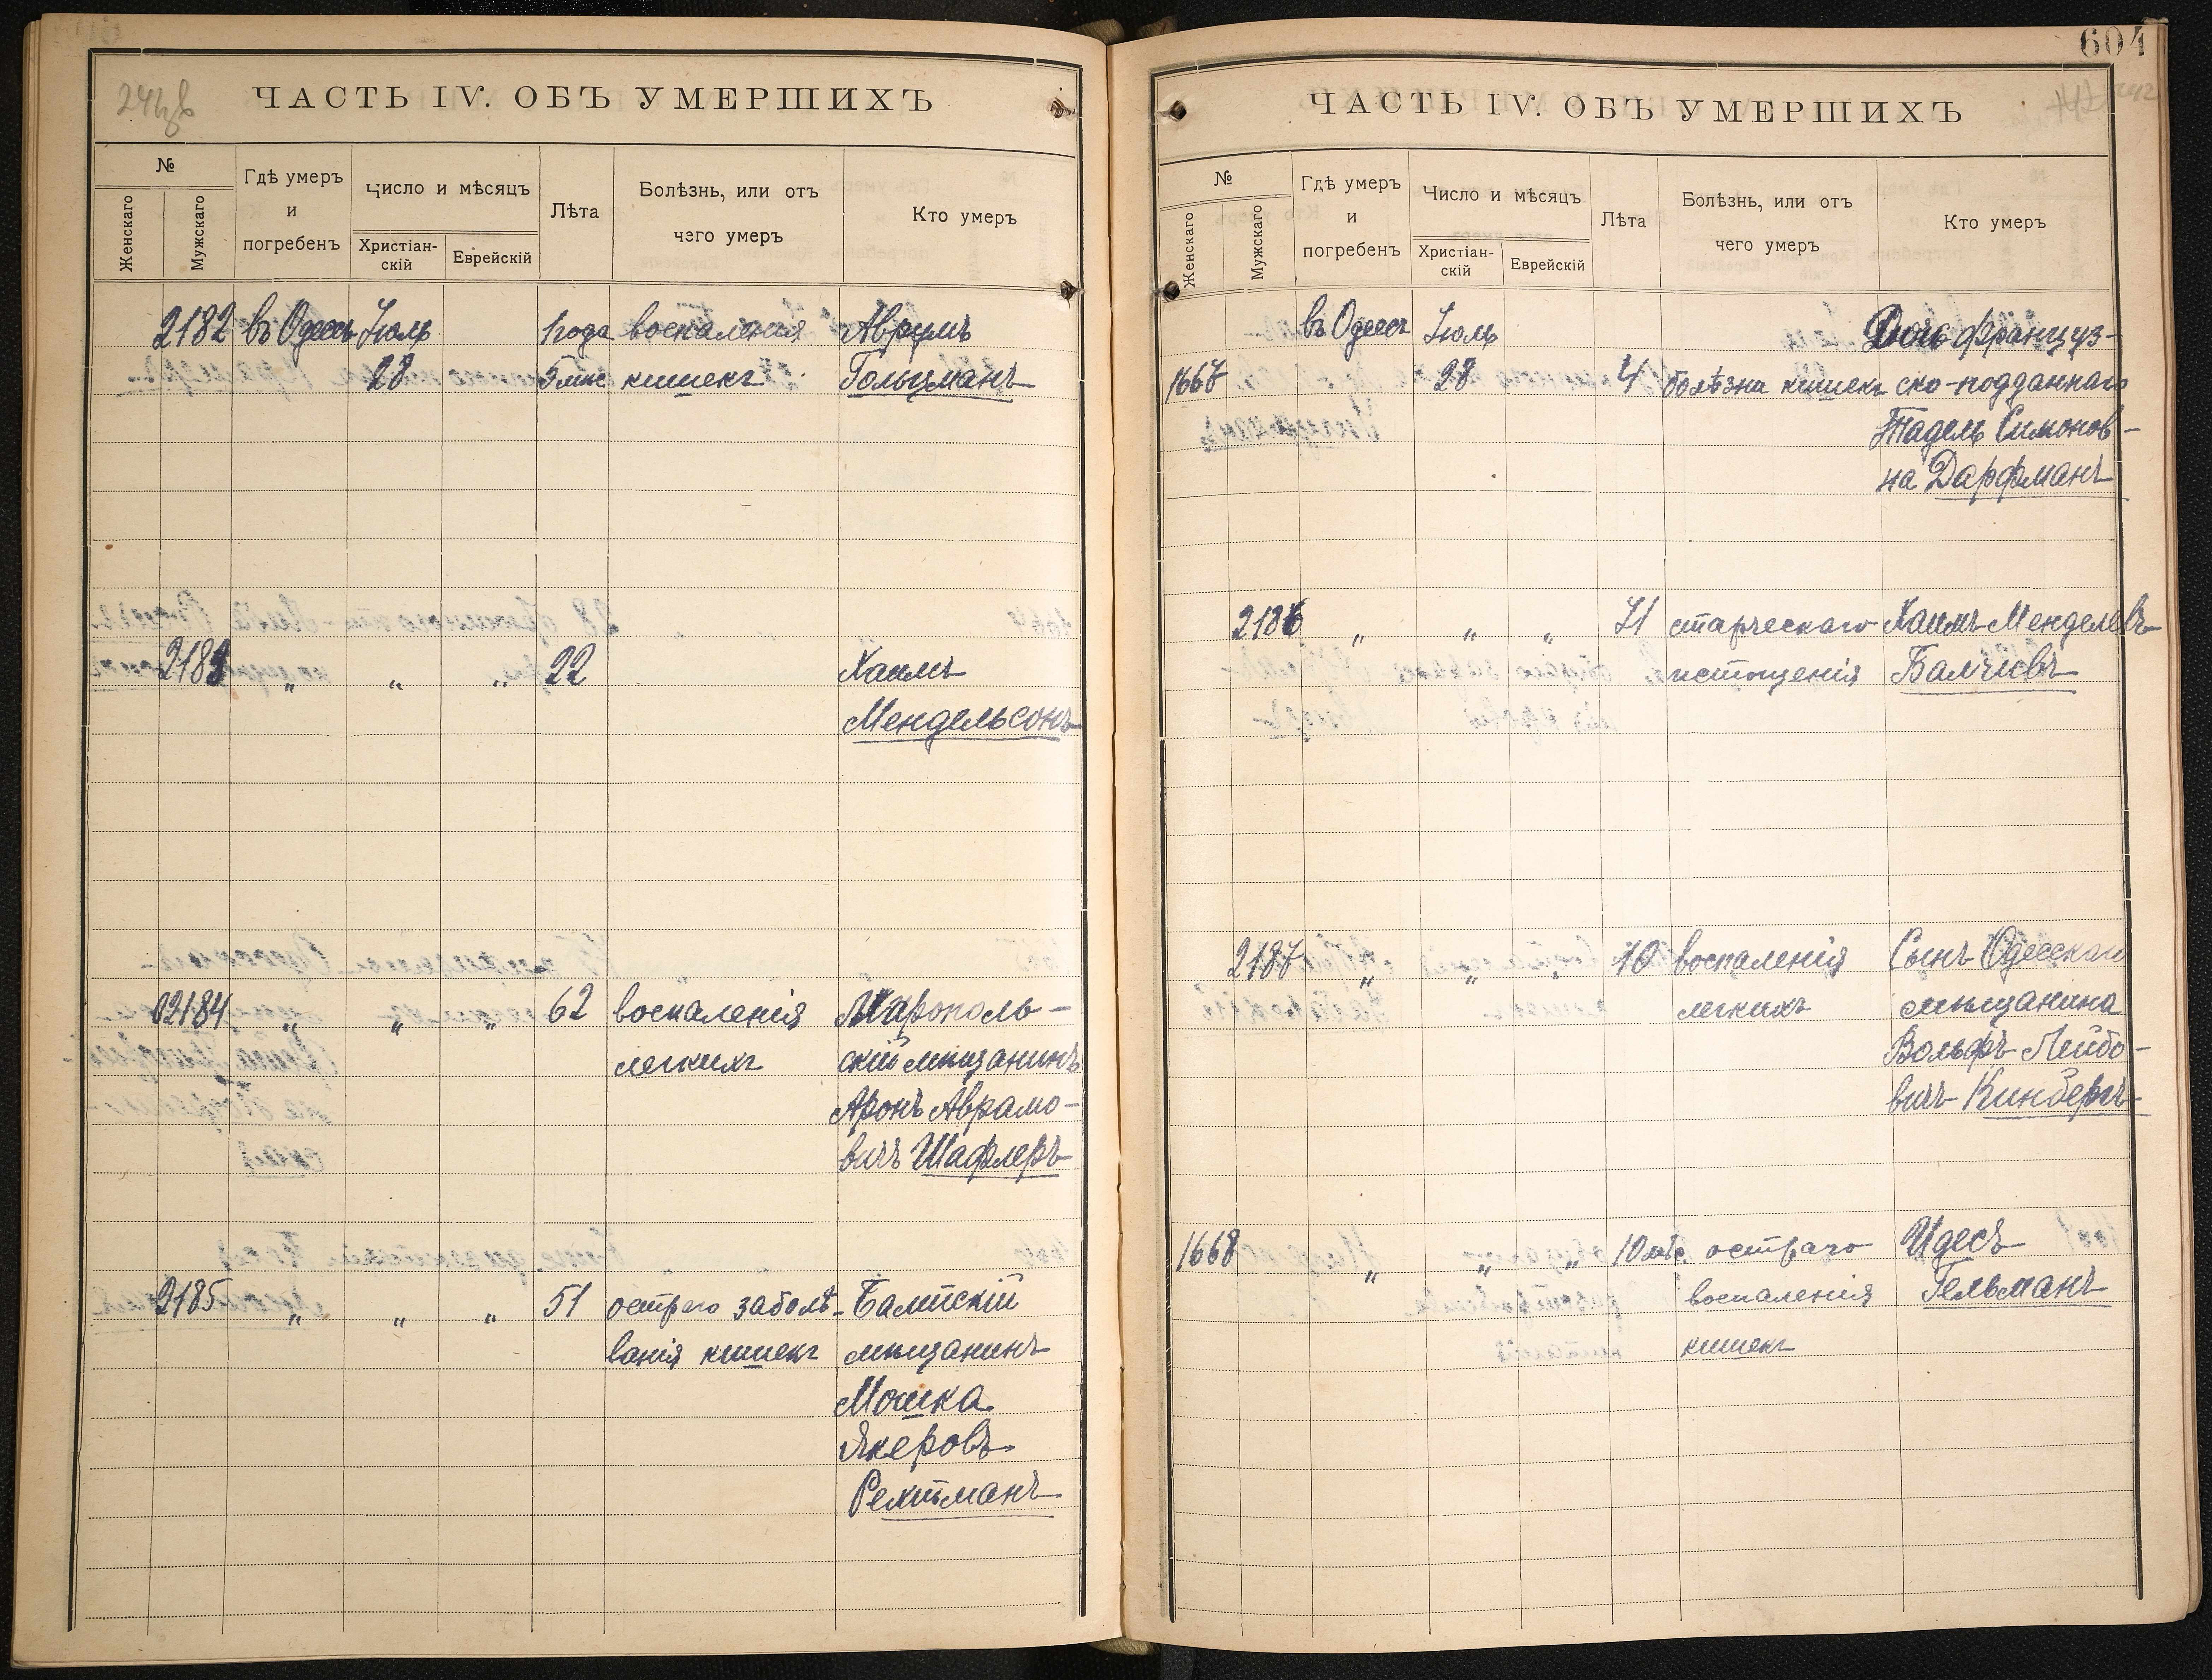 ЧАСТЬ IV. ОБЪ УМЕРШИХЪ
№
Женскаго
Мужскаго
Гдѣ умеръ
и
погребенъ
Число и мѣсяцъ
Христіан-
скій
Еврейскій
Лѣта
Болѣзнь, или отъ
чего умеръ
Кто умеръ
2182 въ Одессѣ Іюль 1 года воспаленія Аврумъ
28 5 мѣс кишекъ Гольцманъ
2183 „ „ „ 22 Хаимъ
Мендельсонъ
2184 „ „ „ 62 воспаленія Мирополь-
легкихъ скій мѣщанинъ
Аронъ Аврамо-
вичъ Шафлеръ
2185 „ „ „ 51 остраго заболѣ- Балтскій
ванія кишекъ мѣщанинъ
Мошка
Якеровъ
Рехтманъ
604
ЧАСТЬ IV. ОБЪ УМЕРШИХЪ
№
Женскаго
Мужскаго
Гдѣ умеръ
и
погребенъ
Число и мѣсяцъ
Христіан-
скій
Еврейскій
Лѣта
Болѣзнь, или отъ
чего умеръ
Кто умеръ
въ Одессѣ Іюль Дочь француз-
1667 28 4 болѣзни кишекъ ско-подданнаго
Тадель Симонов-
на Дарфманъ
2186 „ „ „ 71 старческаго Хаимъ Менделевъ
истощенія Балчіевъ
2187 „ „ „ 10 воспаленія Сынъ Одесскаго
легкихъ мѣщанина
Вольфъ Лейбо-
вичъ Кинбергъ
1668 „ „ „ 10 мѣс. остраго Идесъ
воспаленія Гельманъ
кишекъ